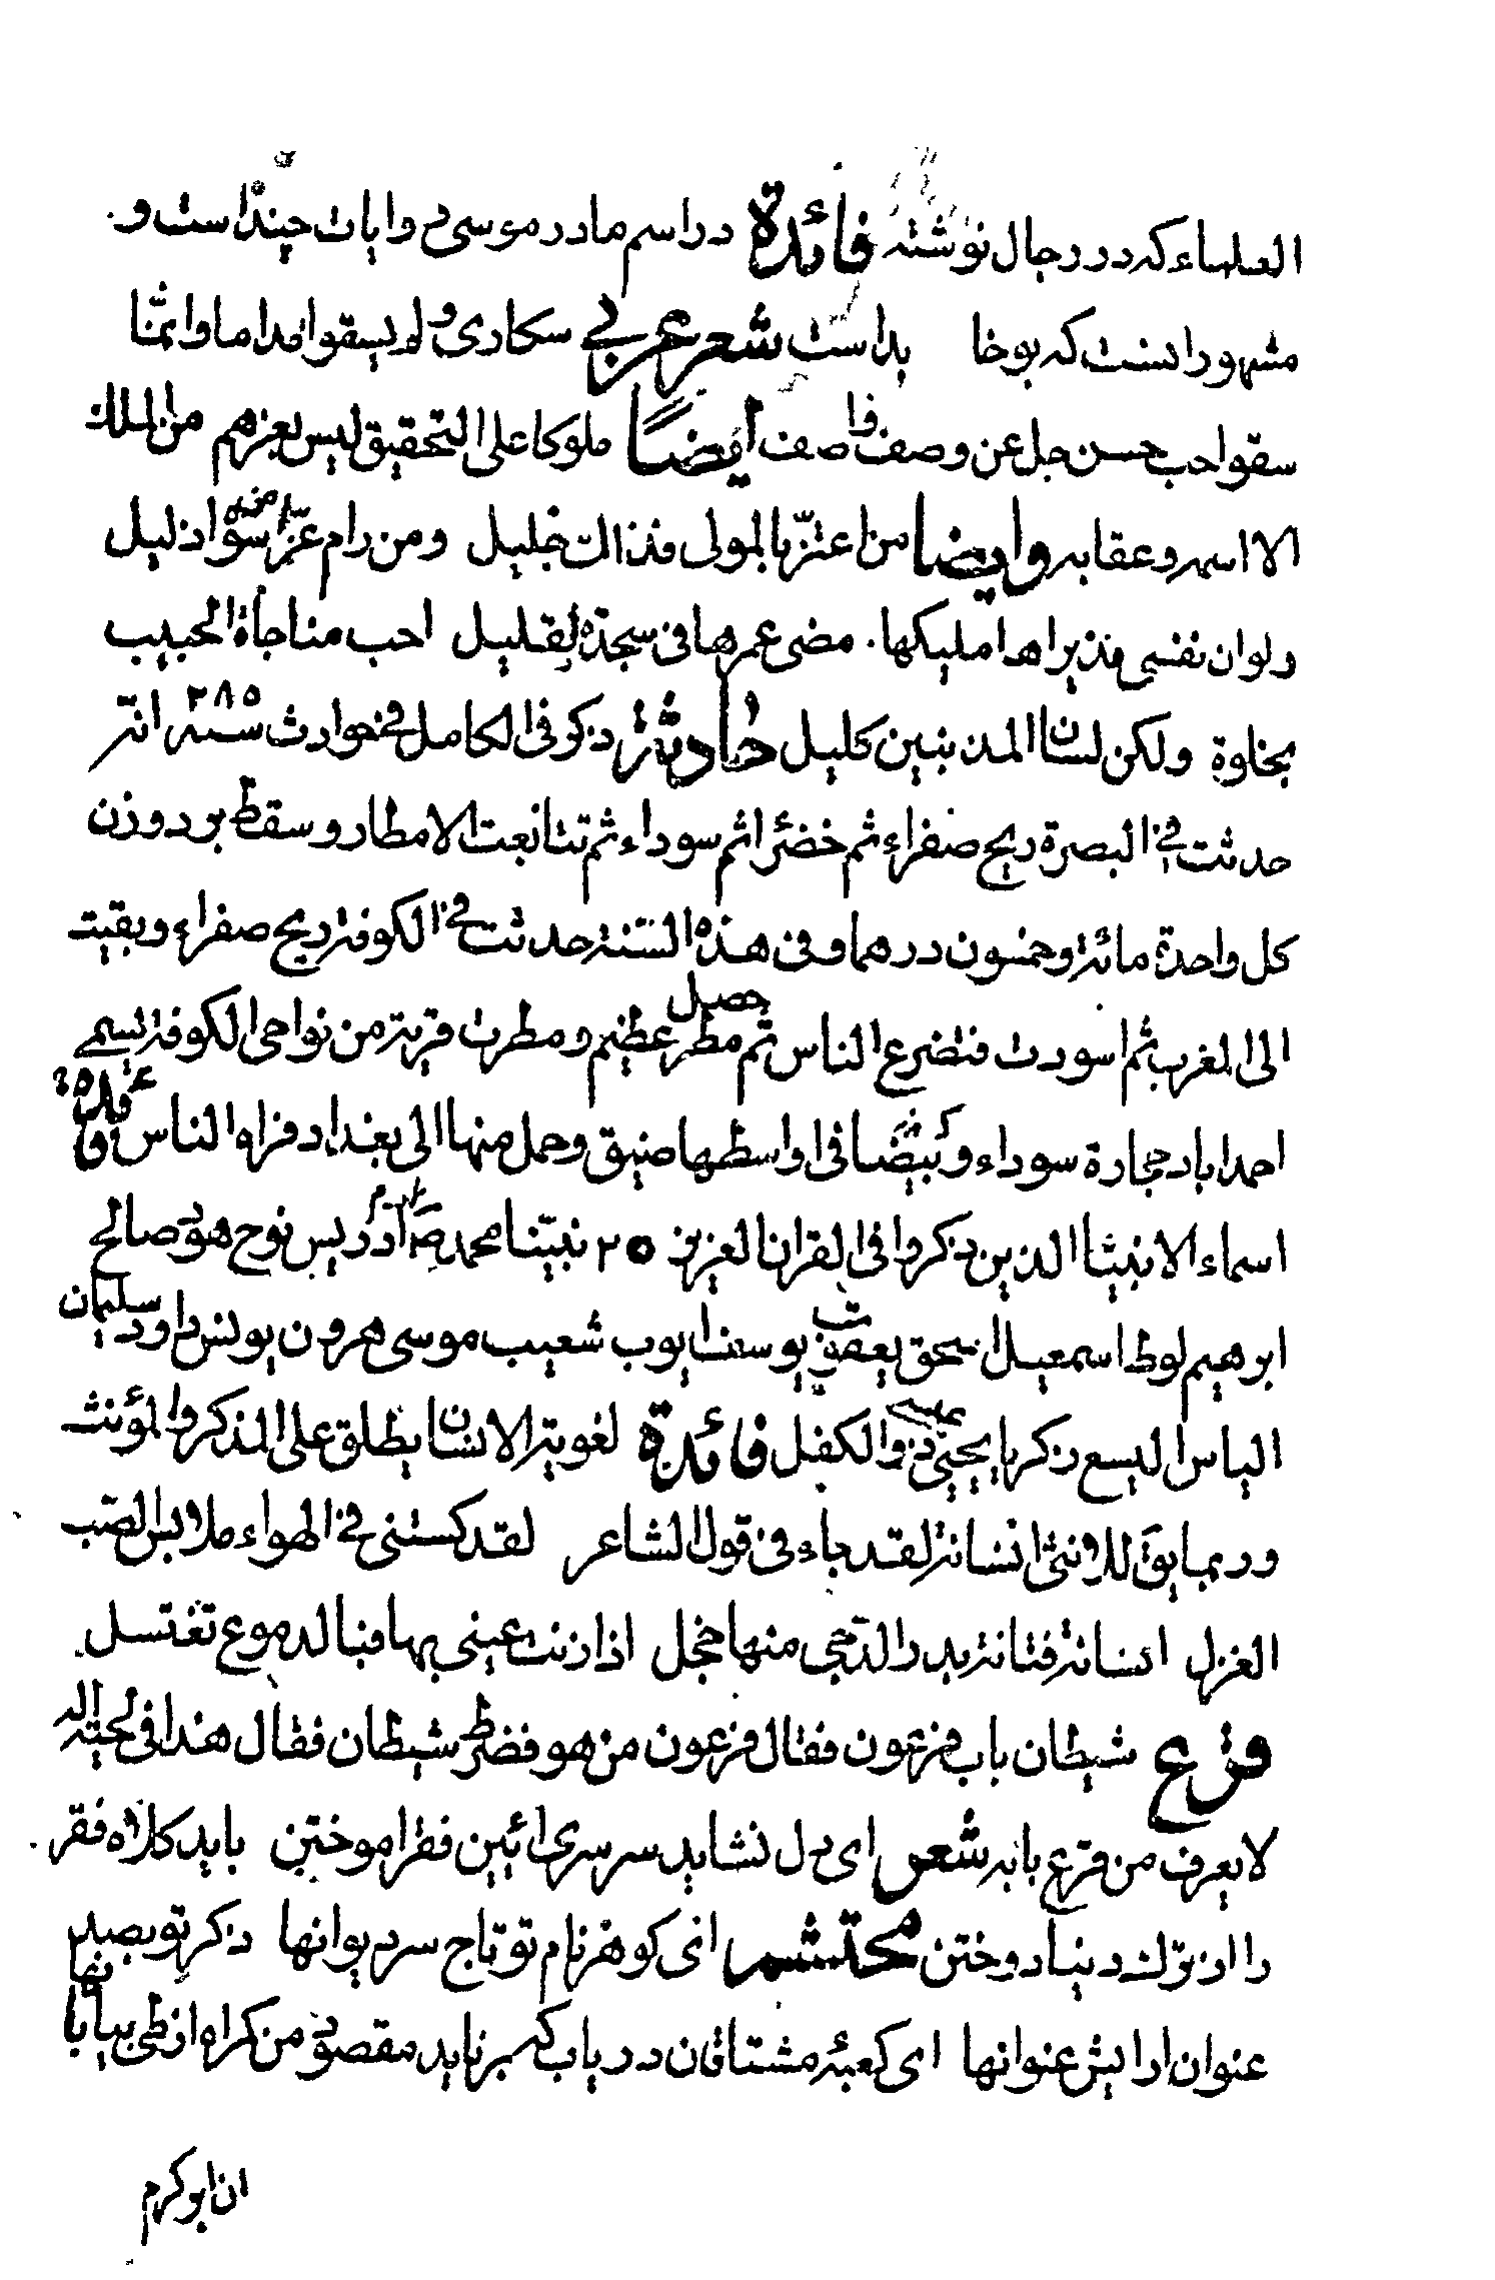 العلماء که در رجال نوشته فائدة در اسم مادر موسی روایات چند است و
مشهور انست که یوخا بد است شعر عربي سکاری ولم یسقوا مداما وانما
سقوا حب حسن جل عن وصف واصف ایضا ملوکا علی التحقیق لیس بغیرهم من الملك
الا اسمه وعقابه وایضا من اعتز بالمولی فذاك جلیل ومن رام عزا من سواه ذلیل
ولو ان نفسی مذ براها ملیکها مضی عمرها فی سجدة لقلیل احب مناجاة الحبیب
بخلوة ولکن لسان المذنبین کلیل حادثة ذکر فی الکامل فی حوادث سنه ٢٨٥ انه
حدثت فی البصرة ریح صفراء ثم خضرا ثم سوداء ثم تتابعت الامطار وسقط برد وزن
کل واحدة مائة وخمسون درهما وفی هذه السنة حدثت فی الکوفة ریح صفراء وبقیت
الی المغرب ثم اسودت فتضرع الناس ثم حصل مطر عظیم ومطرت قریة من نواحی الکوفة تسمی
احمداباد حجارة سوداء وبیضا فی اواسطها ضیق وحمل منها الی بغداد فراه الناس فائدة
اسماء الانبیا الذین ذکروا فی القران العزیز ٢٥ نبینا محمد ص ادم ادریس نوح هود صالح
ابرهیم لوط اسمعیل اسحق یعقوب یوسف ایوب شعیب موسی هرون یونس داود سلیمان
الیاس الیسع زکریا یحیی عیسی ذوالکفل فائدة لغویة الانسان یطلق علی المذکر والمؤنث
وربما یق للانثی انسانة لقد جاء فی قول الشاعر لقد کستنی فی الهواء ملابس الصب
الغزل انسانة فتانة بدر الدجی منها خجل اذا زنت عینی بها فبالدموع تغتسل
قرع شیطان باب فرعون فقال فرعون من هو فضرط شیطان فقال هذا فی لحیة اله
لا یعرف من قرع بابه شعر ای دل نشاید سرسری ائین فقر اموختن باید کلاه فقر
را از ترك دنیا دوختن محتشم انی کوهر نام تو تاج سر دیوانها ذکر تو بصد
عنوان ارایش عنوانها ای کعبهٔ مشتاقان دریاب که بر ناید مقصود من کمراه از طی بیابانها
ان ابو کرم